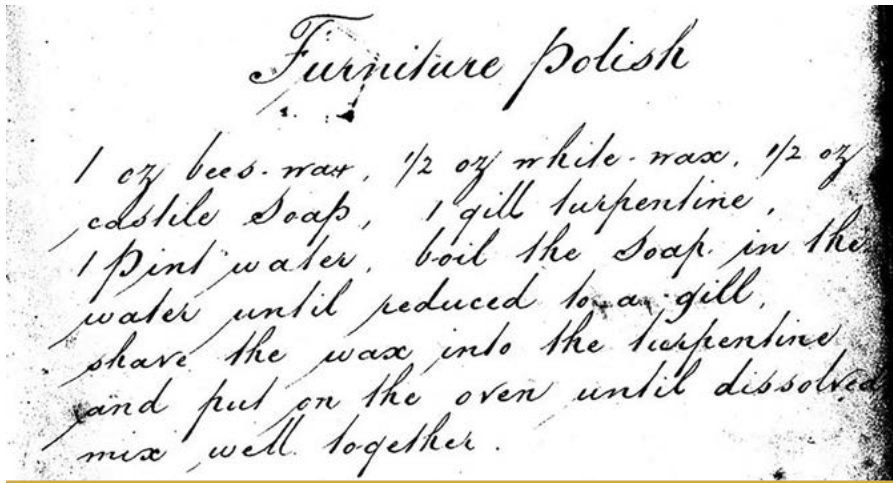 Furniture Polish
1 oz bees-wax, 1/2 oz white-wax, 1/2 oz
castile Soap, 1 gill turpentine,
1 Pint water, boil the Soap in the
water until reduced to a gill,
shave the wax into the turpentine
and put on the oven until dissolved
mix well together.